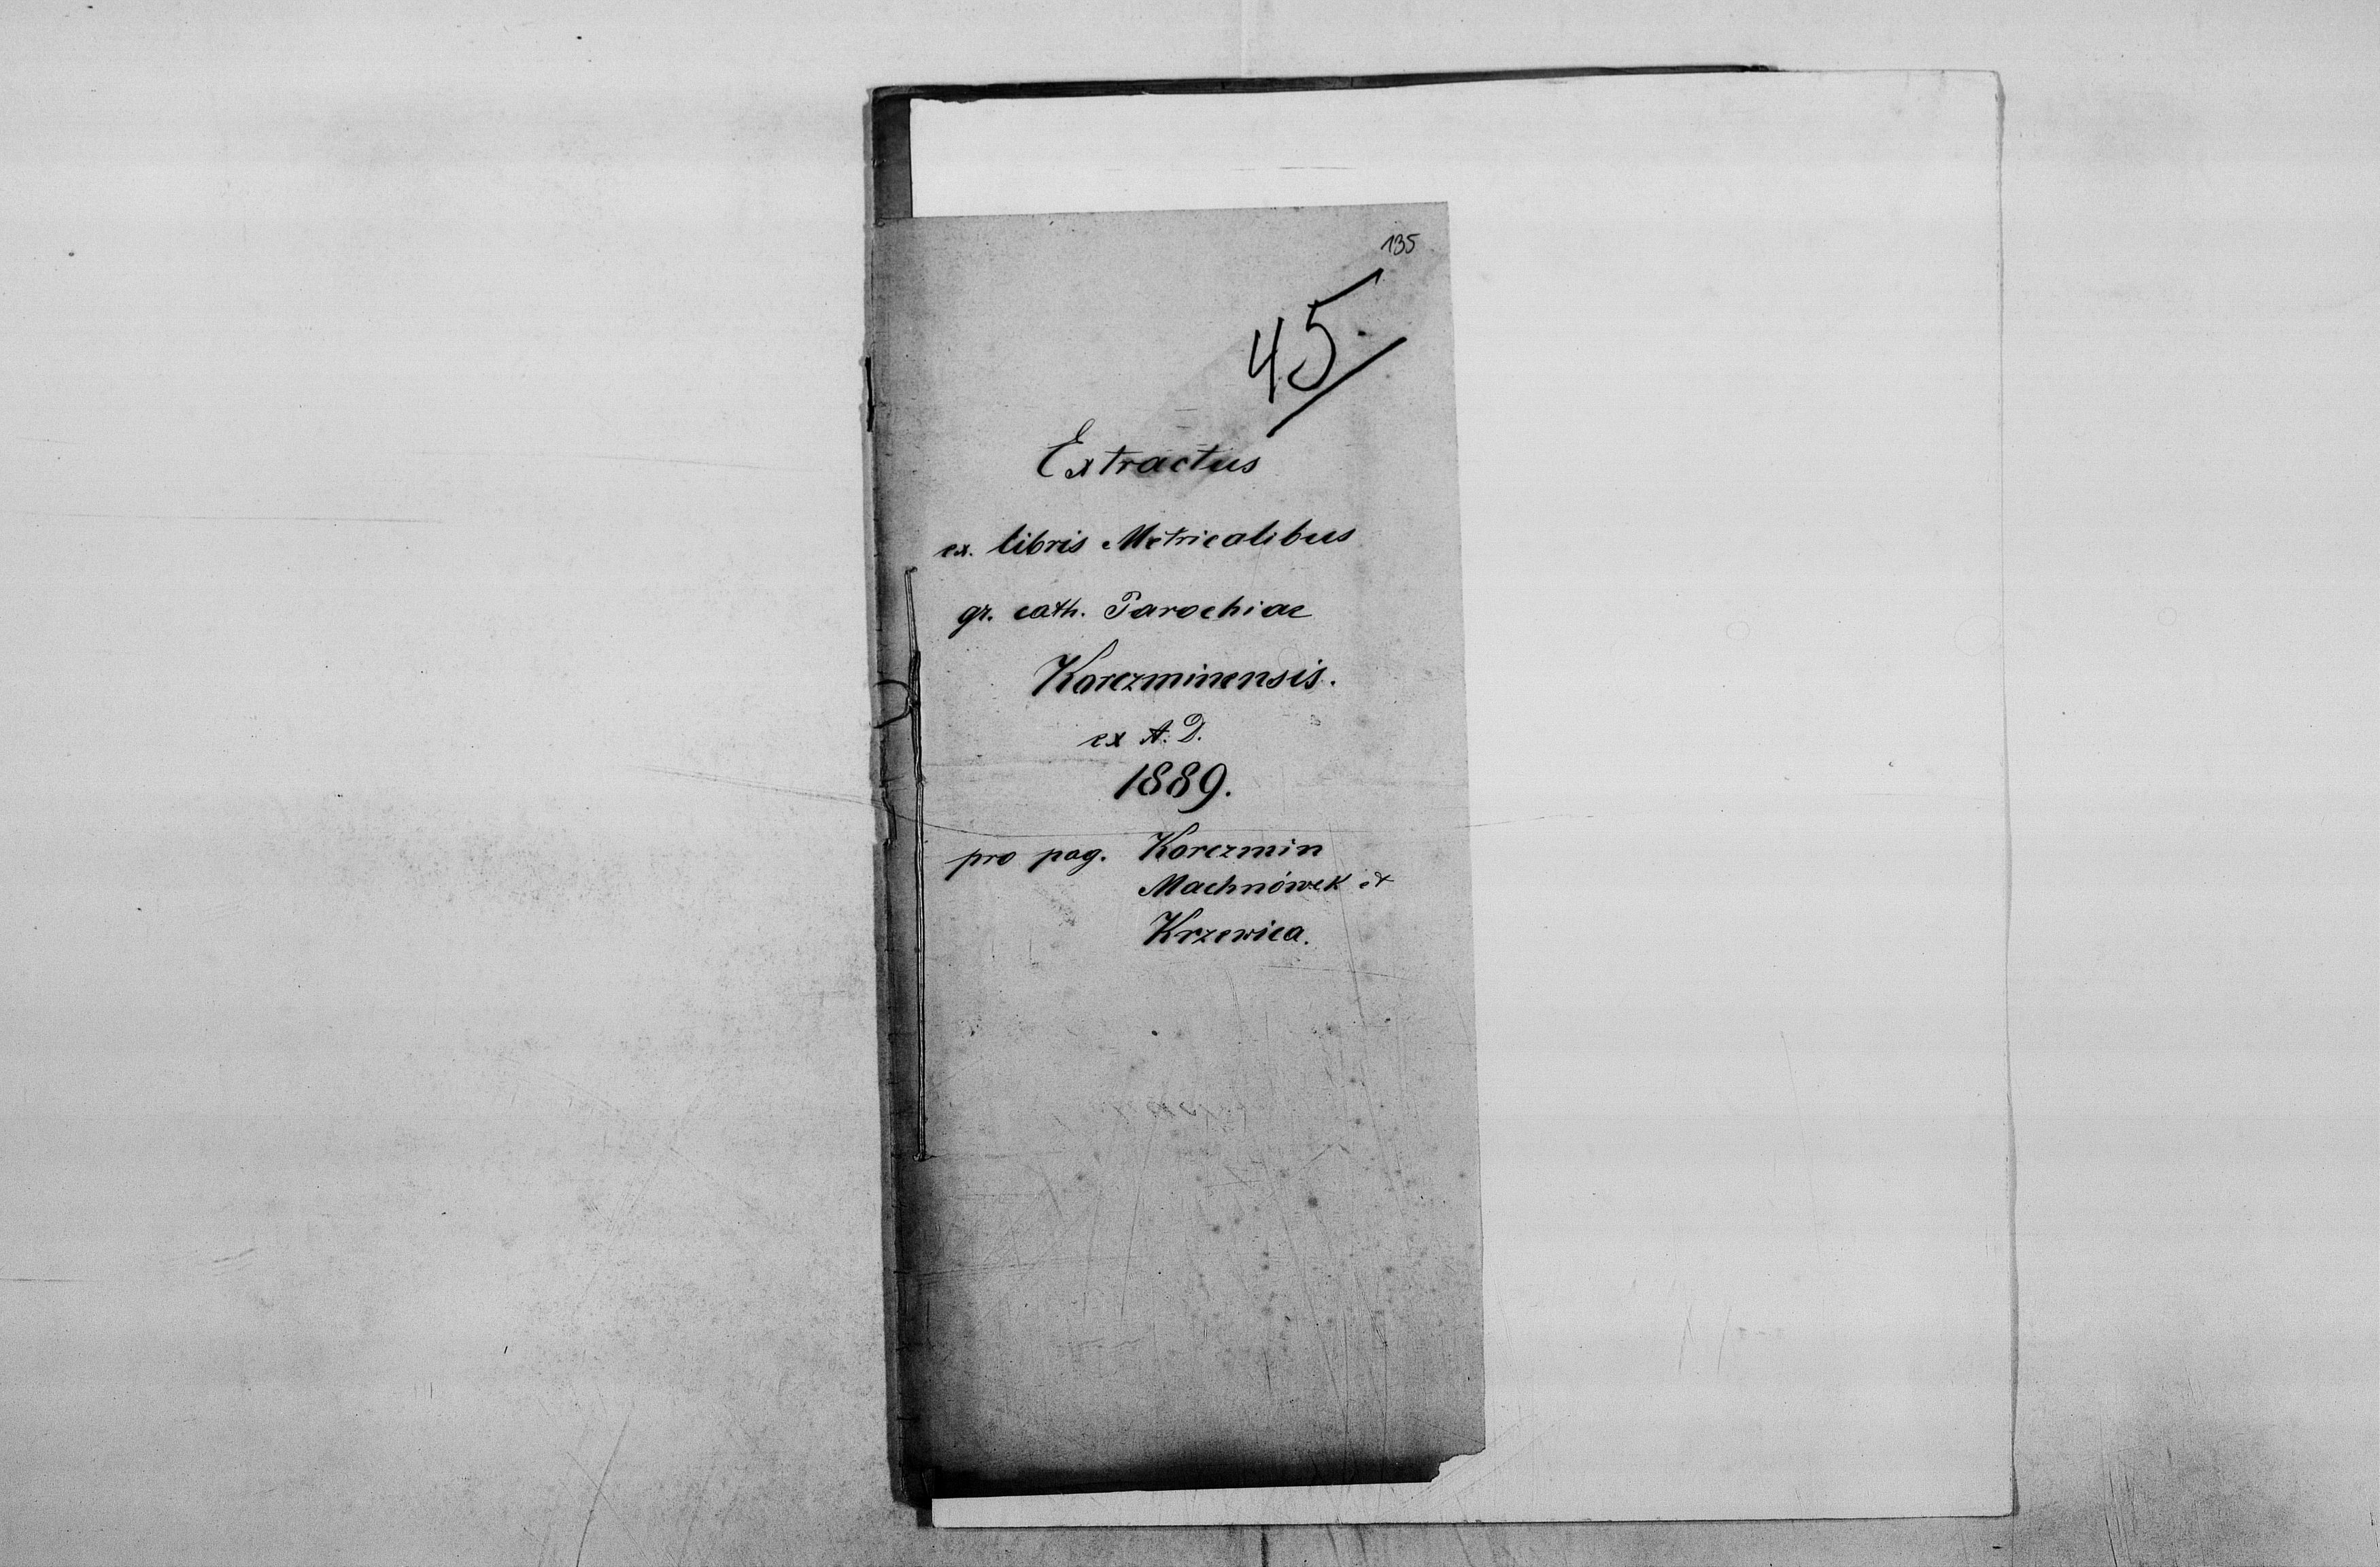 135
45.
Extractus
ex. libris Metricalibus
gr. cath. Parochiae
Korczminensis.
ex A. D.
1889.
pro pag. Korczmin
Machnówek et
Krzewica.